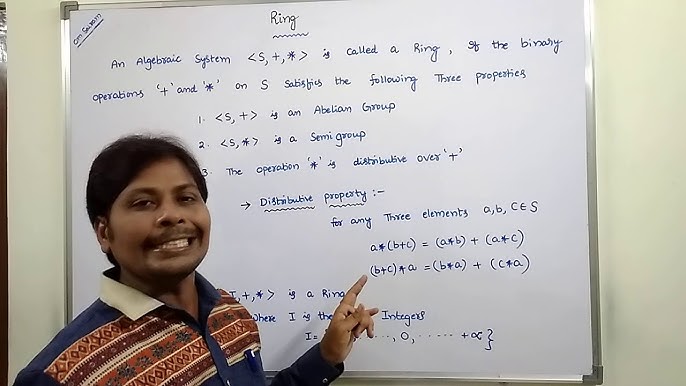 OM SAIRAM
Ring
An Algebraic System <S,+,*> is called a Ring, If the binary
operations '+' and '*' on S Satisfies the following Three properties
1. <S,+> is an Abelian Group
2. <S,*> is a Semigroup
3. The operation '*' is distributive over '+'
→ Distributive property :-
for any Three elements a,b,c∈S
a*(b+c) = (a*b) + (a*c)
(b+c)*a = (b*a) + (c*a)
I,+,*> is a Ring
Where I is the Integers
I= ..., 0, ........ +∝}